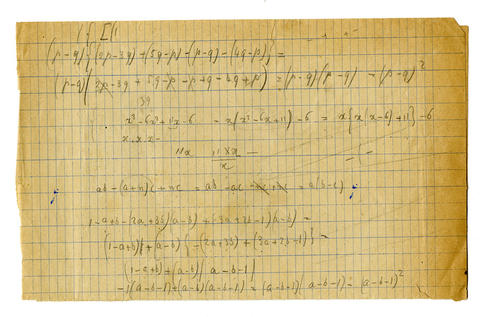 { [(1
(p-q){(2p-3q)+(5q-p)-(p-q)-(4q-p)}=
(p-q)(2p-3q+5q-p-p+q-4q+p) = (p-q)(p-q) = (p-q)²
3q
x³-6x²+11x-6 = x(x²-6x+11)-6 = x{x(x-6)+11}-6
x.x.x-
11x
ab-(a+n)c+nc = ab-ac = a(b-c)
1-a+b-(2a+3b)(a-b)+(3a+2b-1)(a-b)=
(1-a+b)+(a-b){-(2a+3b)+(3a+2b-1)}=
(1-a+b)+(a-b)(a-b-1)
-1(a-b-1)+(a-b)(a-b-1) = (a-b-1)(a-b-1) = (a-b-1)²